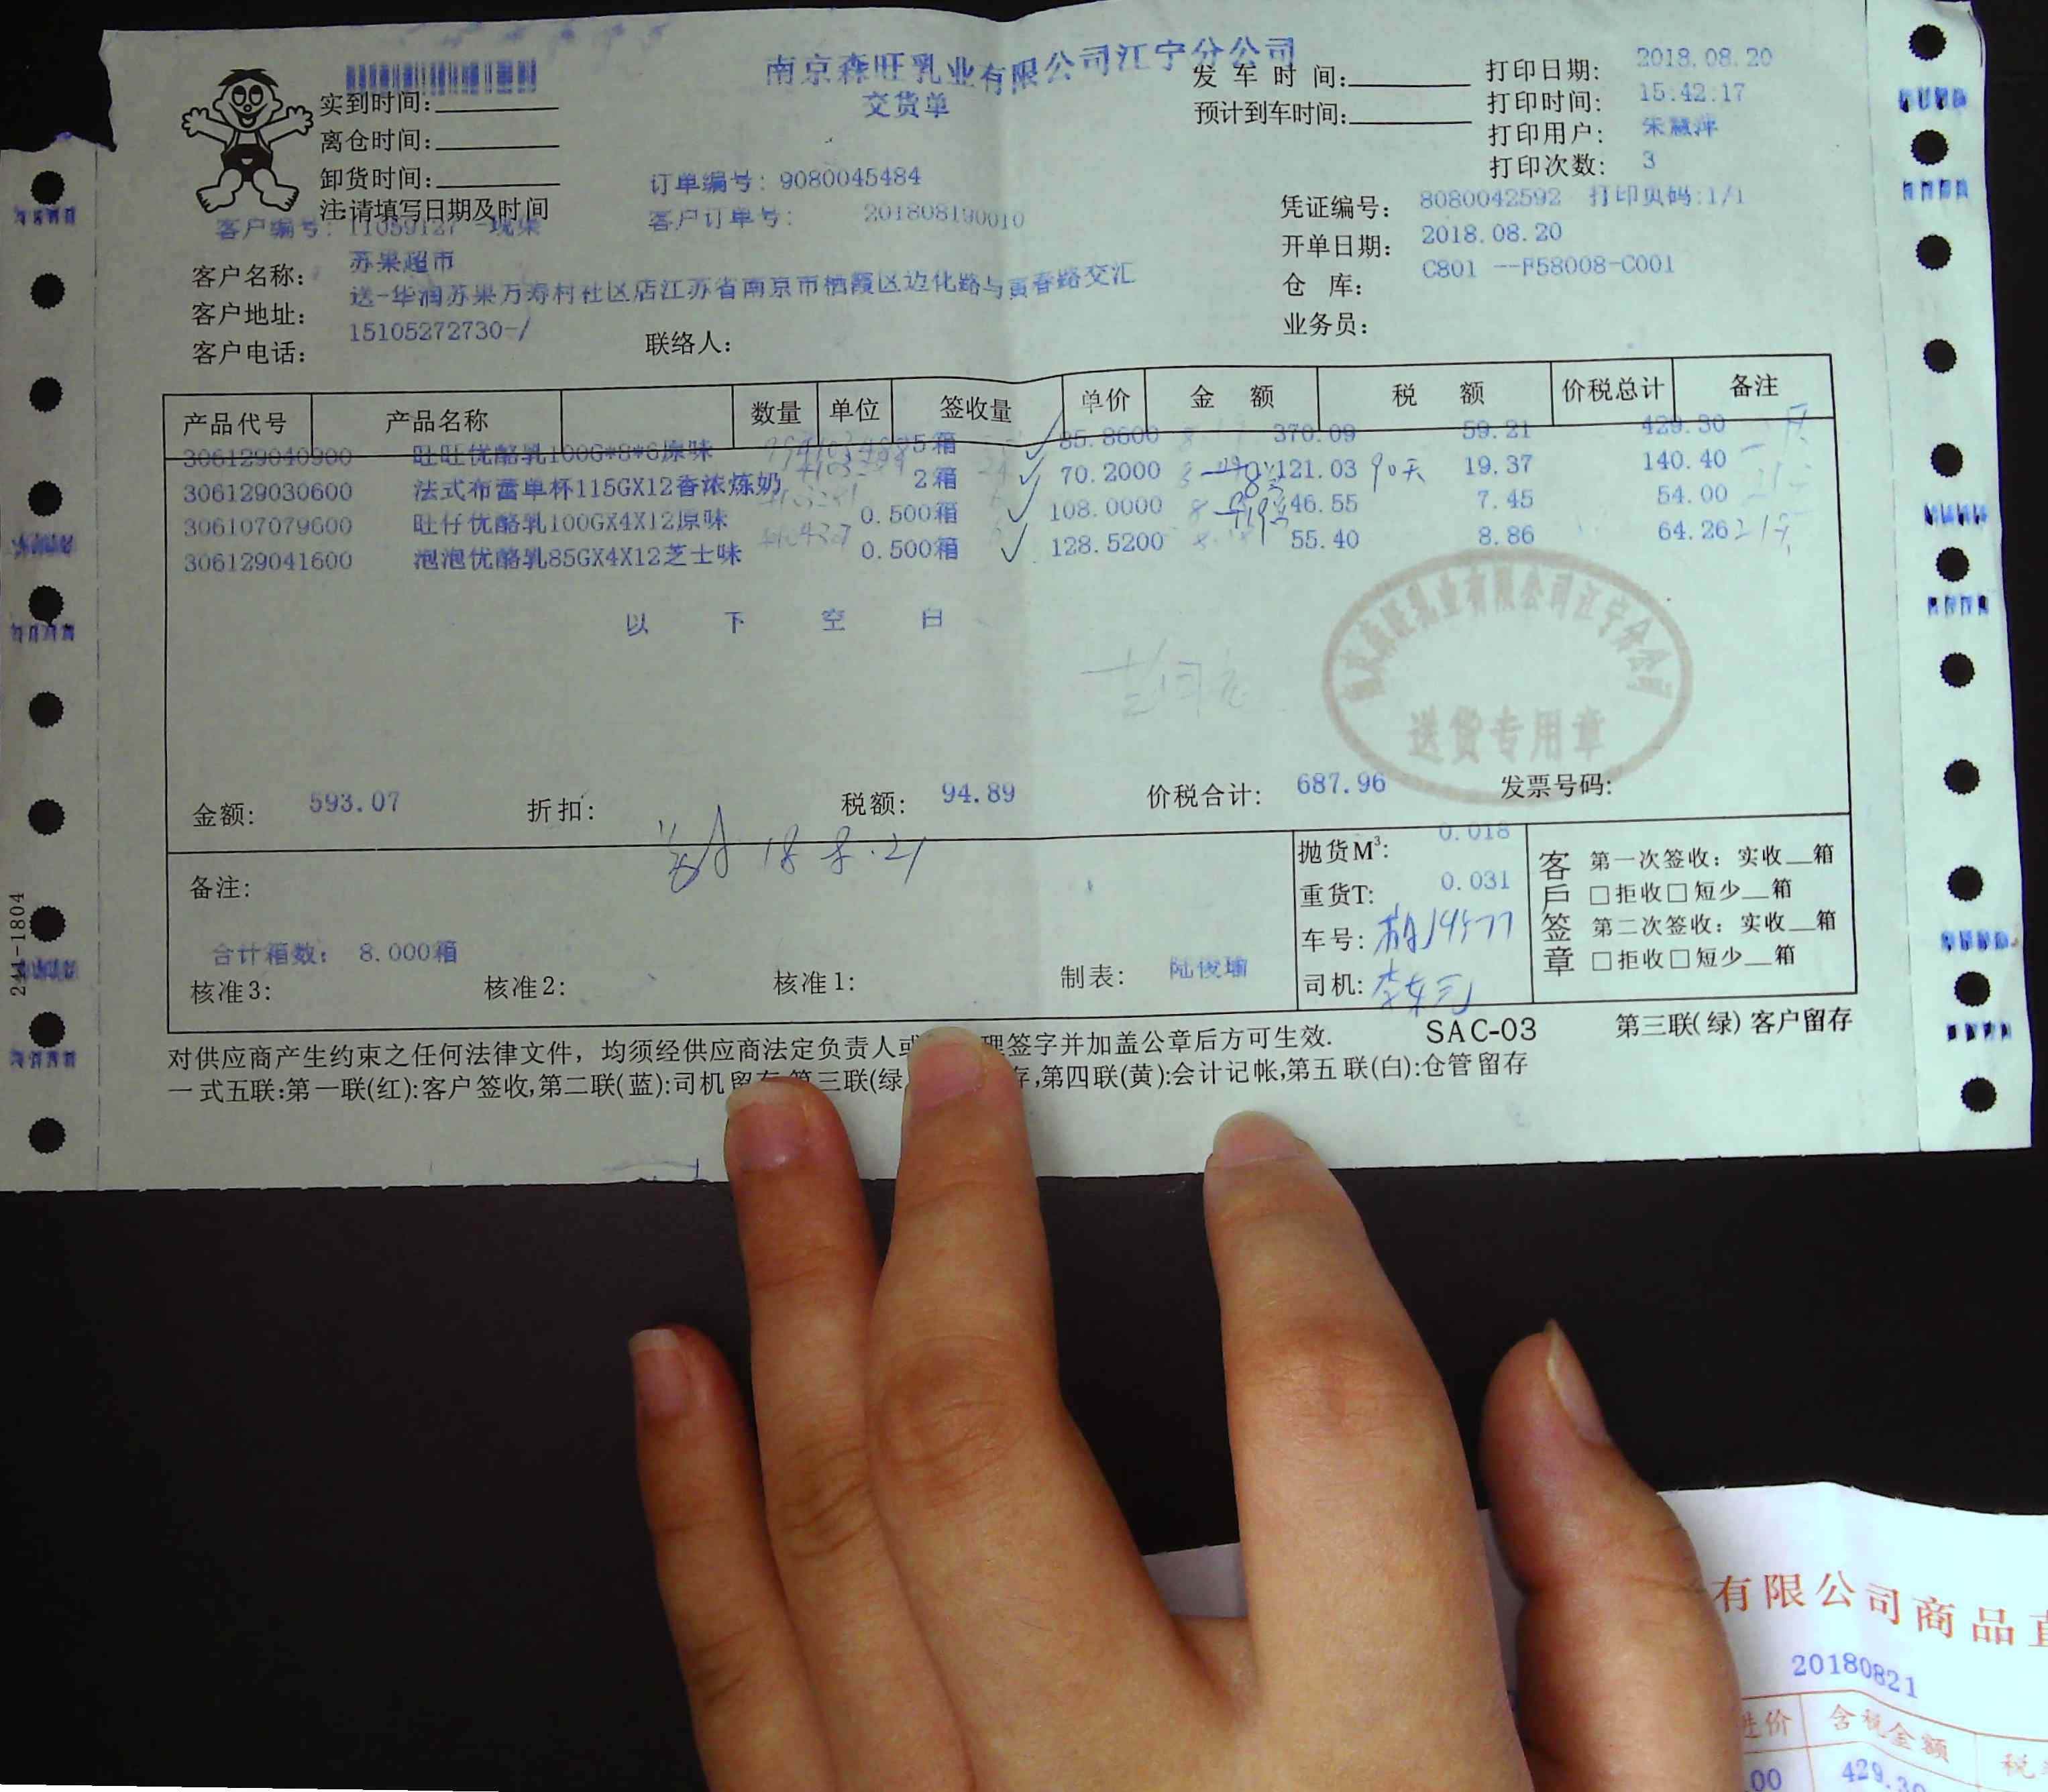 南京森旺乳业有限公司江宁分公司
交货单
实到时间:
离仓时间:
卸货时间:
注:请填写日期及时间
发车时间:
预计到车时间:
打印日期: 2018.08.20
打印时间: 15.42.17
打印用户: 朱慧萍
打印次数: 3
订单编号: 9080045484
客户订单号: 201808190010
凭证编号: 8080042592 打印页码:1/1
开单日期: 2018.08.20
仓库: C801 --F58008-C001
业务员:
客户编号: 11059127
客户名称: 苏果超市
客户地址: 送-华润苏果万寿村社区店江苏省南京市栖霞区迈化路与寅春路交汇
客户电话: 15105272730-/
联络人:
产品代号 产品名称 数量 单位 签收量 单价 金额 税额 价税总计 备注
306129040900 旺旺优酪乳100G*8*6原味 5箱 85.8600 370.09 59.21 429.30
306129030600 法式布蕾单杯115GX12香浓炼奶 2箱 70.2000 121.03 90天 19.37 140.40
306107079600 旺仔优酪乳100GX4X12原味 0.500箱 108.0000 46.55 7.45 54.00
306129041600 泡泡优酪乳85GX4X12芝士味 0.500箱 128.5200 55.40 8.86 64.26
以下空白
送货专用章
金额: 593.07 折扣: 税额: 94.89 价税合计: 687.96 发票号码:
18.8.21
备注:
合计箱数: 8.000箱
核准3: 核准2: 核准1: 制表: 陆俊瑜
抛货M³: 0.018
重货T: 0.031
车号:
司机:
客戶签章
第一次签收: 实收__箱
□拒收□短少__箱
第二次签收: 实收__箱
□拒收□短少__箱
对供应商产生约束之任何法律文件，均须经供应商法定负责人或 理签字并加盖公章后方可生效. SAC-03 第三联(绿) 客户留存
一式五联:第一联(红):客户签收,第二联(蓝):司机留存,第三联(绿 存,第四联(黄):会计记帐,第五联(白):仓管留存
241-1804
有限公司商品直
20180821
进价 含税金额 税
.00 429.30